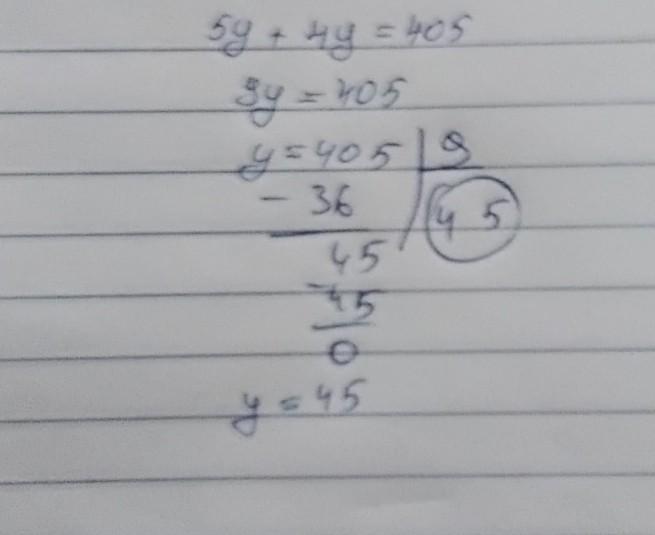 5y + 4y = 405
9y = 405
y = 405 | 9
- 36 | 45
45
- 45
0
y = 45